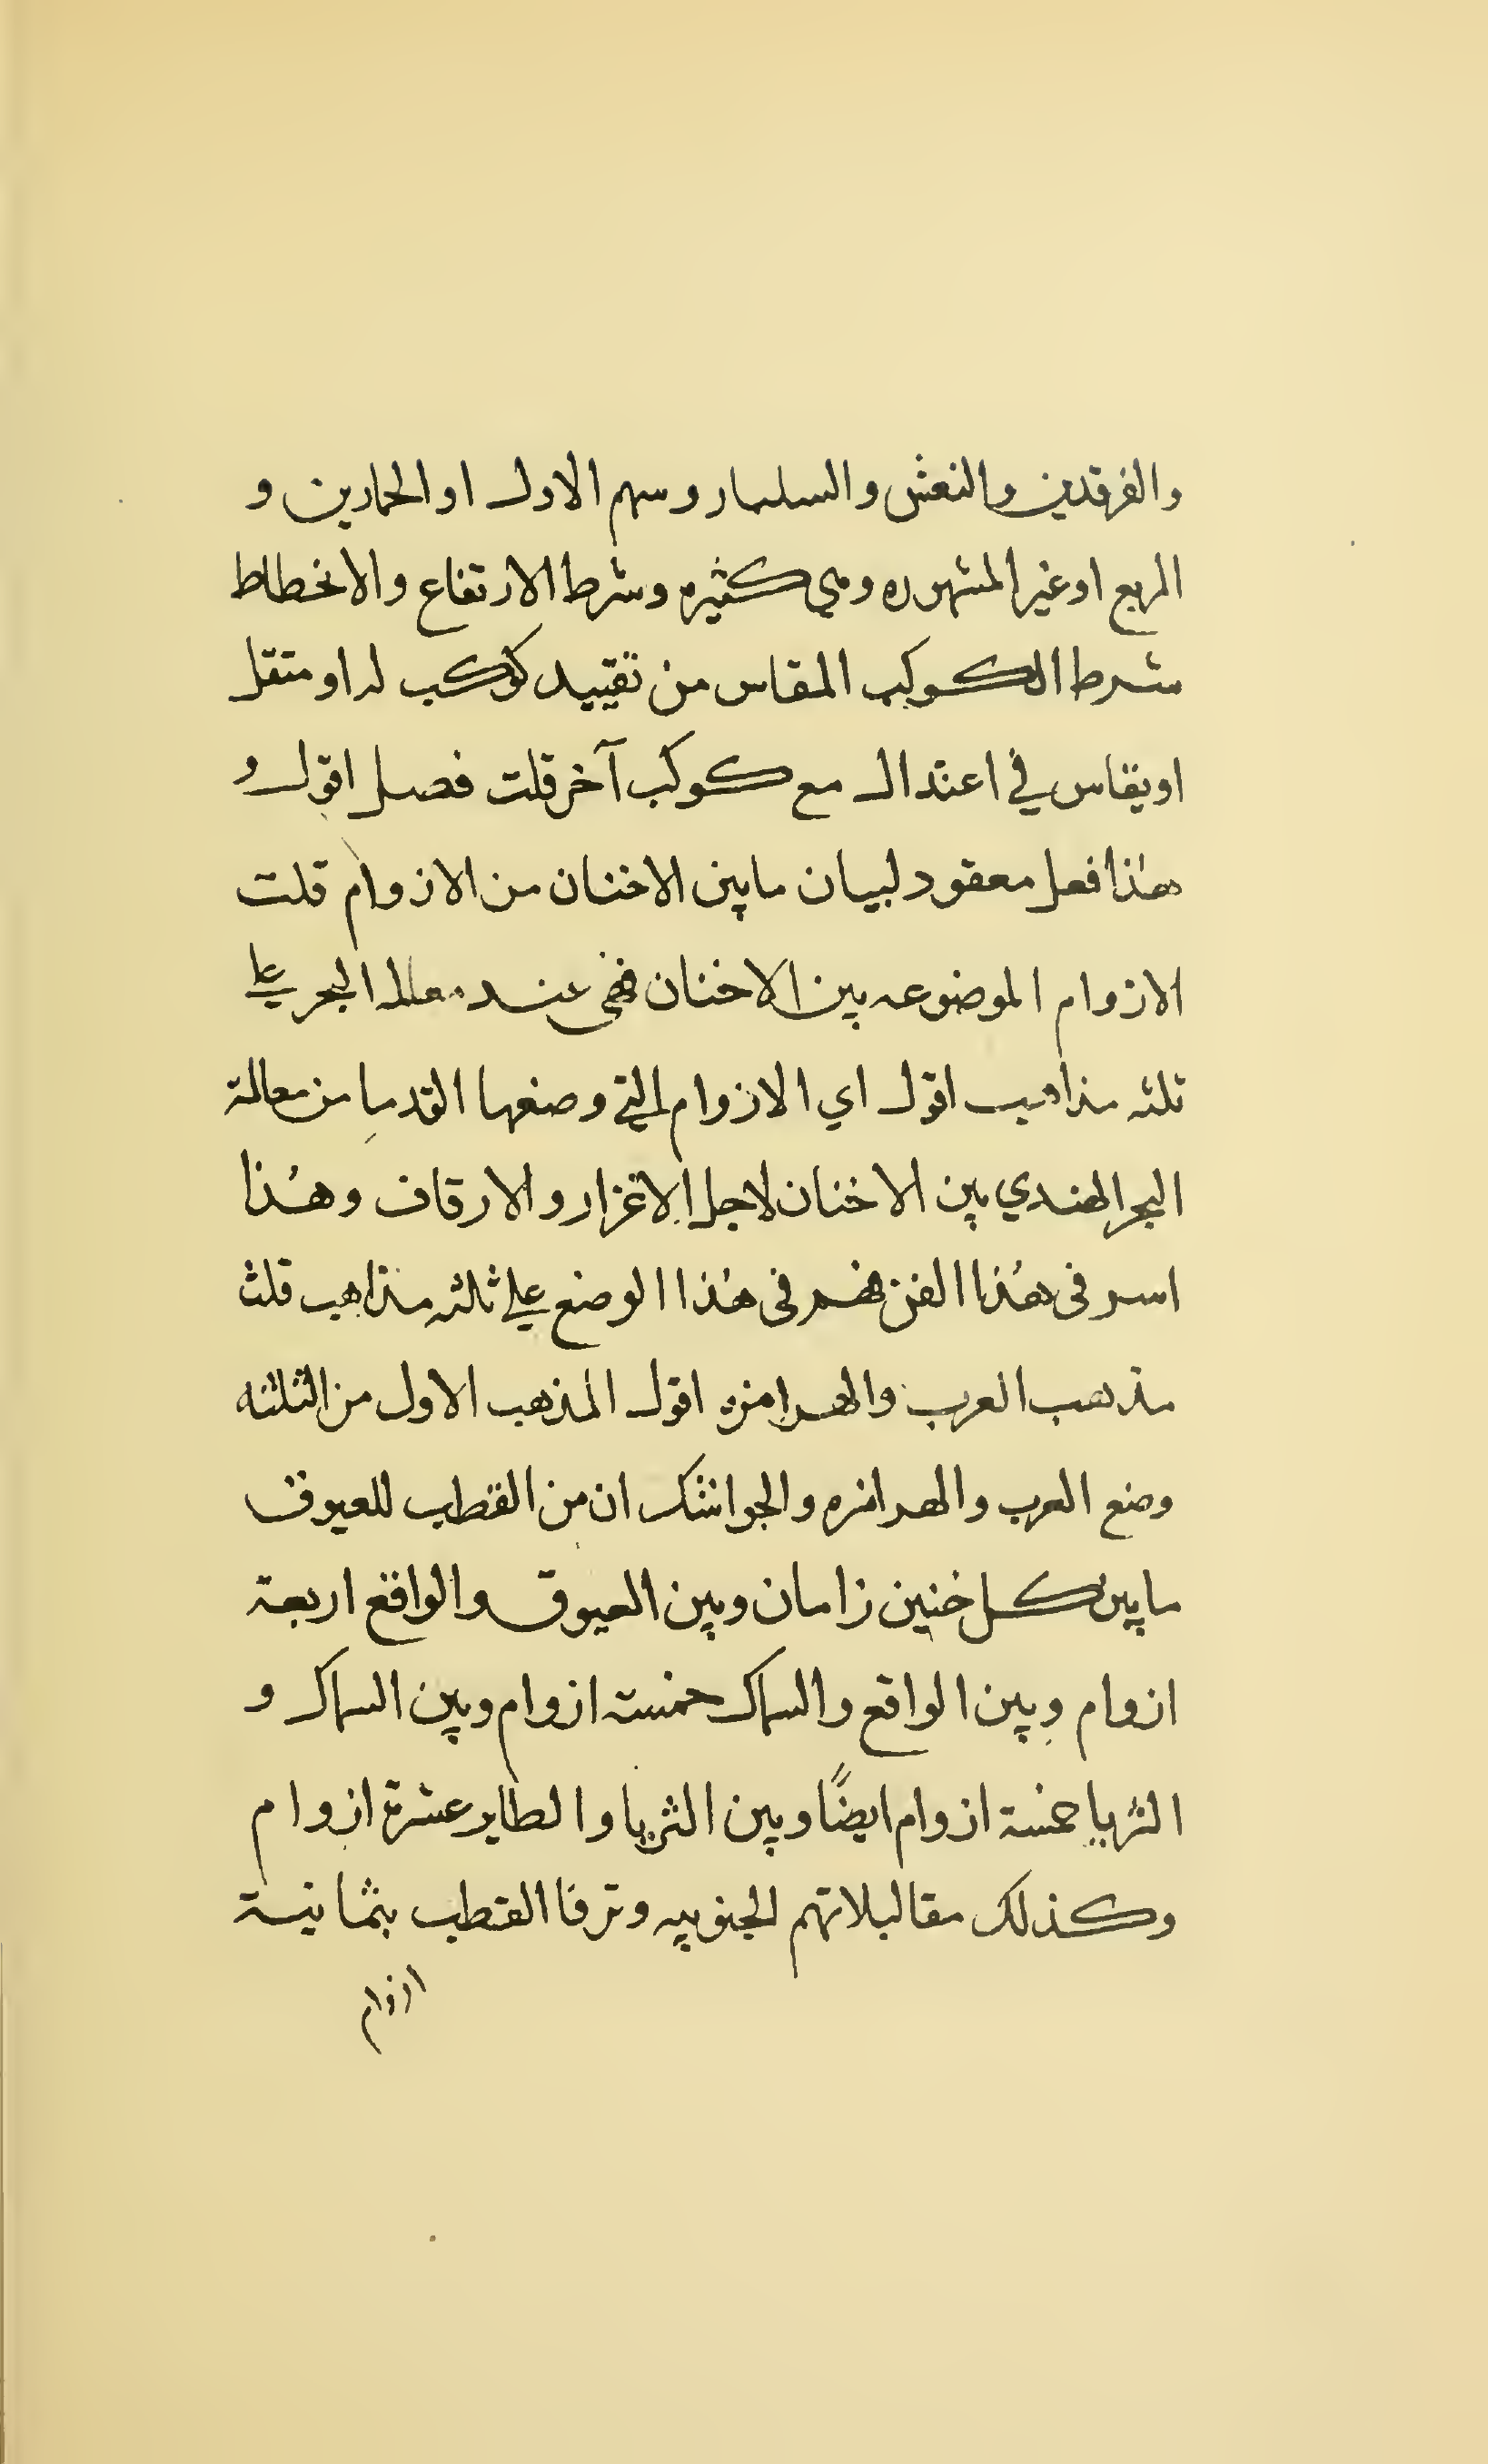 والفرقدين والنعش والسلبار وسهم الاول او الحمارين و
المربع او غير المشهوره وهي كثيره وشرط الارتفاع والانحطاط
شرط الكوكب المقاس من تقييد كوكب له او متقل
او يقاس في اعتدال مع كوكب آخر قلت فصل اقول و
هذا فعل معقود لبيان ما بين الاخنان من الازوام قلت
الازوام الموضوعه بين الاخنان فهي عند معالمة البحر علي
ثلثه مذاهب اقول اي الازوام التي وضعها القدما من معالمة
البحر الهندي بين الاخنان لاجل الاغزار والارقاف وهذا
اسر في هذا الفن فهم في هذا الوضع علي ثلثه مذاهب قلت
مذهب العرب والهرامزه اقول المذهب الاول من الثلثه
وضع العرب والهرامزه والجواشك ان من القطب للعيوق
ما بين كل خنين زامان وبين العيوق والواقع اربعة
ازوام وبين الواقع والسماك خمسة ازوام وبين السماك و
الثريا خمسة ازوام ايضًا وبين الثريا والطاير عشرة ازوام
وكذلك مقالبلاتهم الجنوبيه وترفا القطب بثمانية
ازوام